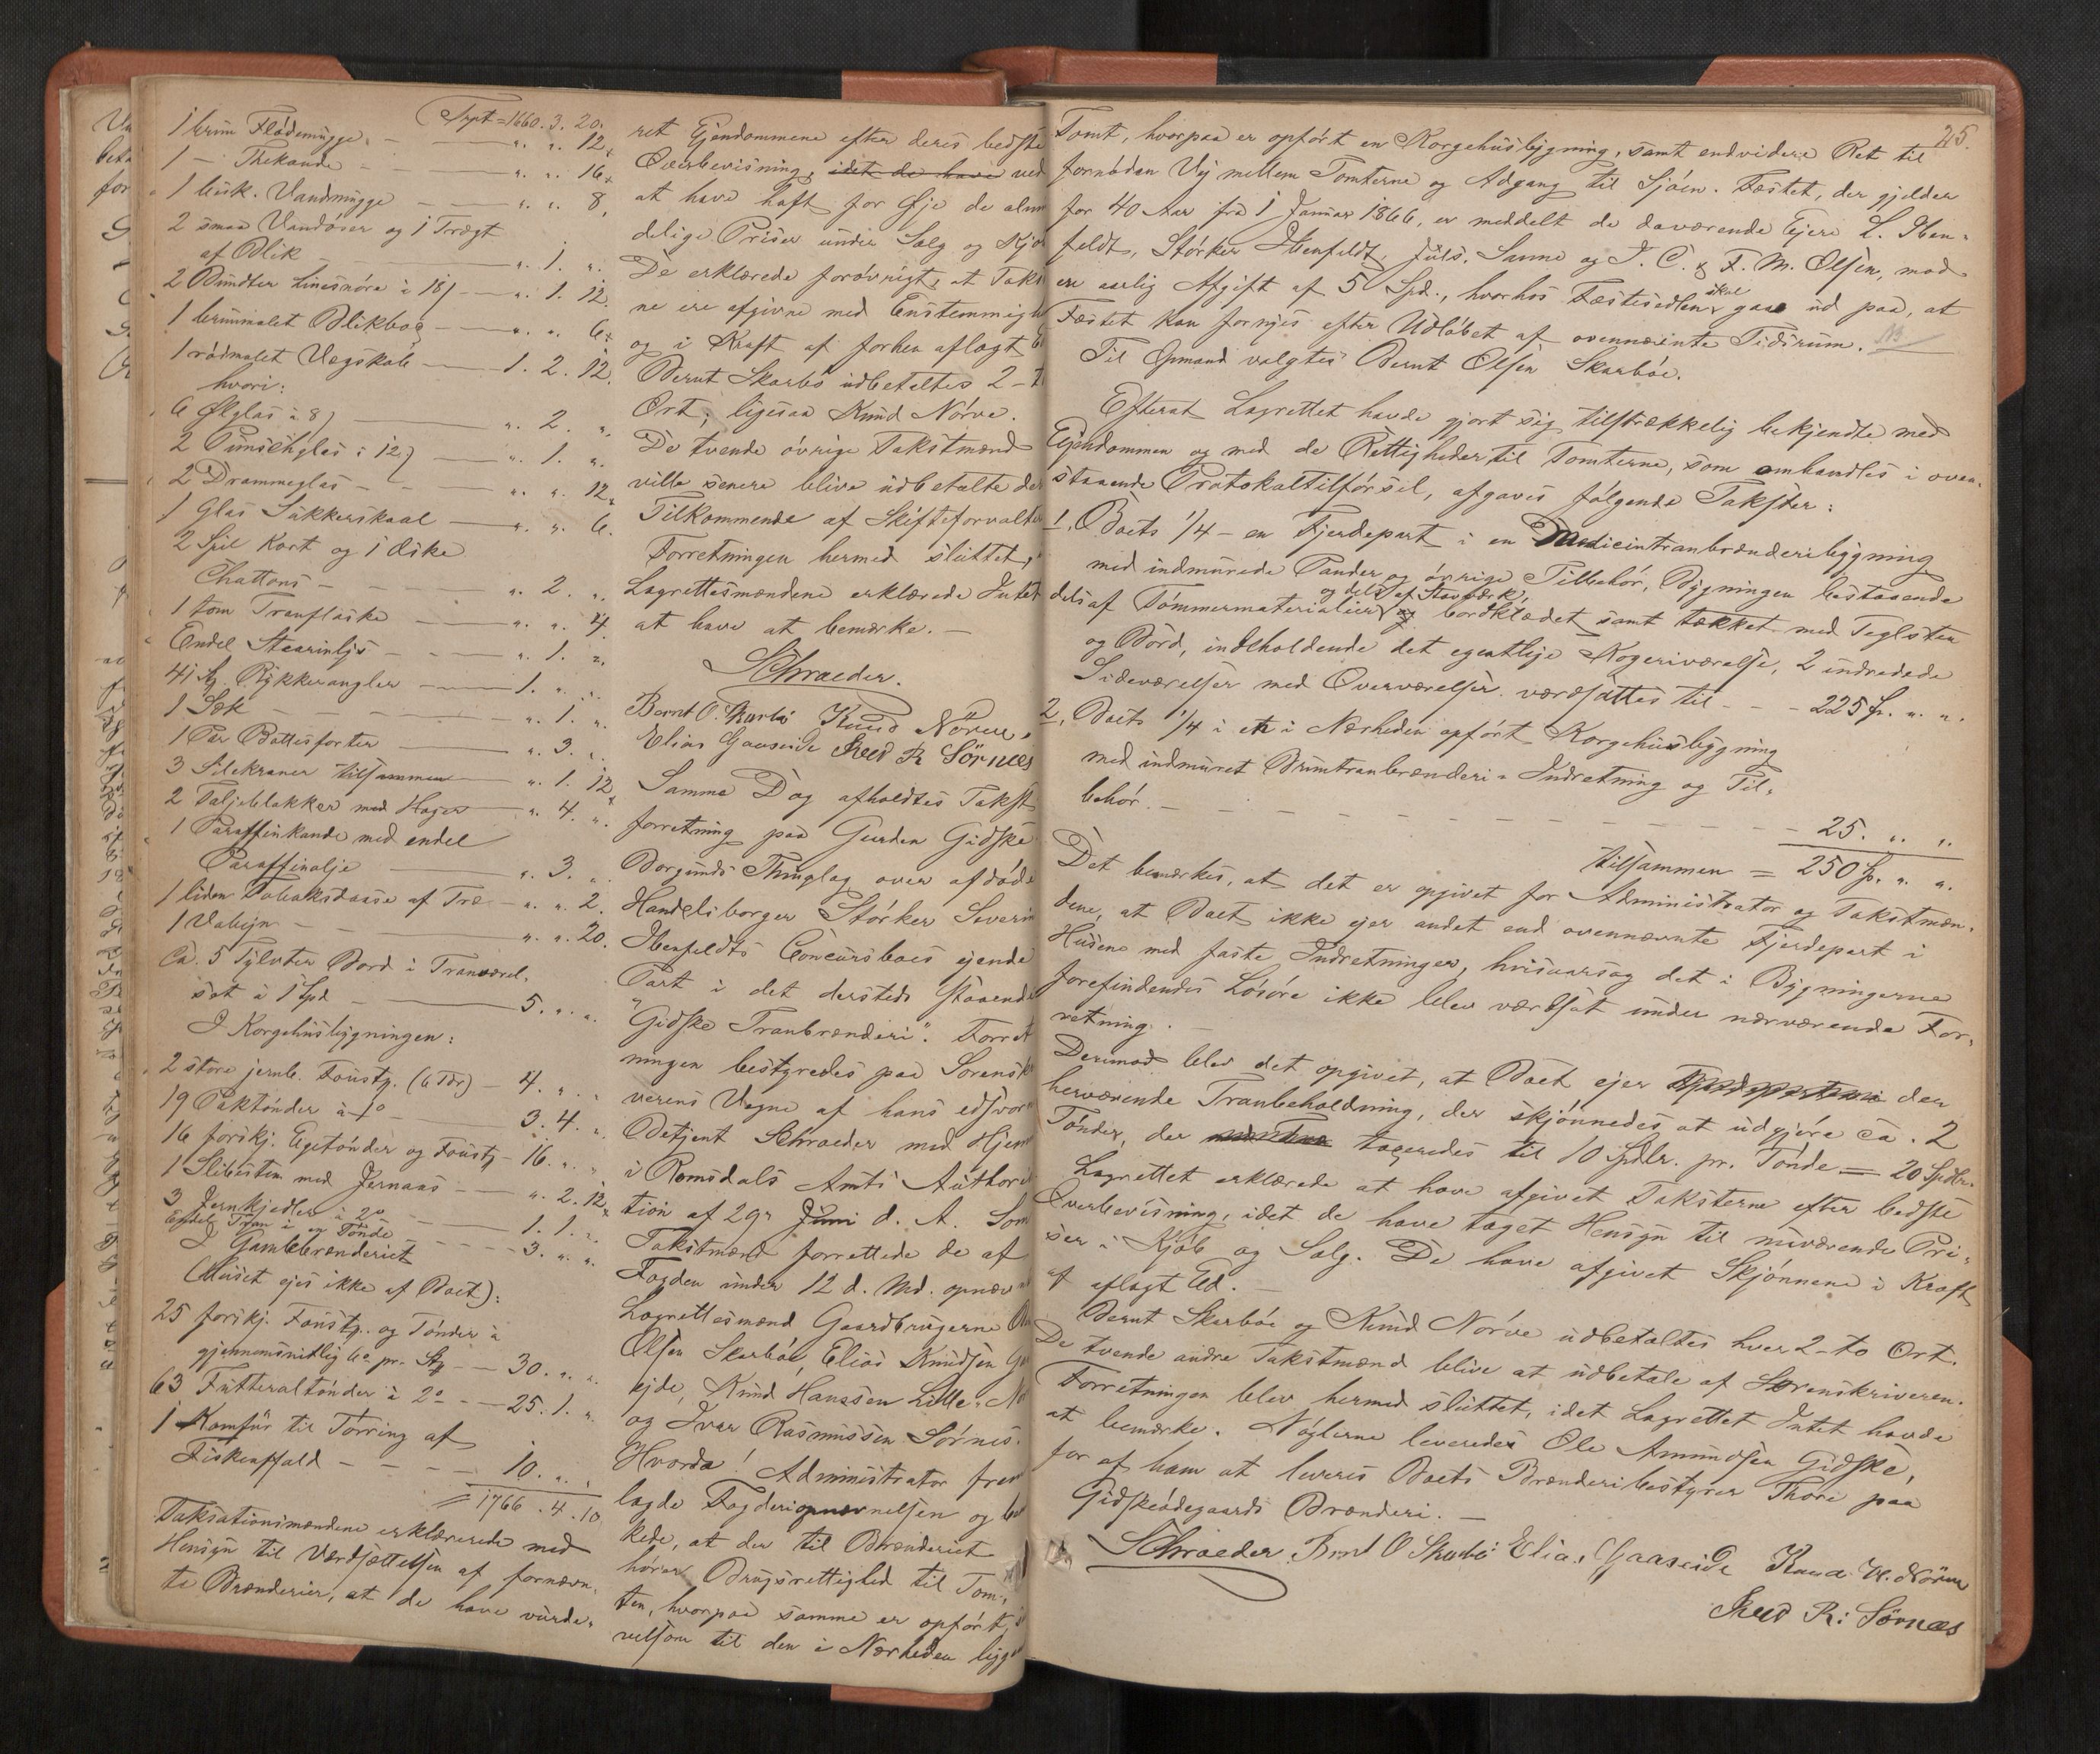 Trspt = 1660. 3. 20.
1 brun Flödemugge. — " " 12
1 — Thekande — " " 16
1 husk. Vandmugge — " " 8
2 smaa Vandöser og 1 Tragt
af Blik — " 1. "
2 Bundter Linesnöre à 18 — " 1. 12.
1 brunmalet Blikbog — " " 6
1 rödmalet Vegskab — 1. 2. 12.
hvori:
6 Ølglas à 8 — " 2. "
2 Punschglas à 12 — " 1. "
2 Drammeglas — " " 12
1 Glas Sukkerskaal — " " 6.
2 Spil Kort og 1 Æske
Chattons — " 2. "
1 tom Tranflaske — " " 4
Endel Stearinlys — " 1. "
41 St. Rykkerangler — 1. " "
1 Sæk — " 1. "
1 Par Bottesforter — " 3. "
3 Silekraner tilsammen — " 1. 12
2 Taljeblokker med Hager — " 4. "
1 Paraffinkande med endel
Paraffinolje — " 3. "
1 liden Tobaksdaase af Træ — " " 2.
1 Vaterpas — " " 20.
Ca. 5 Tylvter Bord i Tranværel-
set à 1 Spd — 5. " "
I Korgehusbygningen:
2 store jernb. Foustg. (6 Tdr) — 4. " "
19 Paktönder à 1 o — 3. 4. "
16 forskj. Egetönder og Foustg — 16. " "
1 Slibesten med Jernaas — " 2. 12
3 Jernkjedler à 2 o — 1. 1. "
Endel Tran i en Tönde — 3. " "
I Gamlebrænderiet
(Huset ejes ikke af Boet):
25 forskj. Foustg. og Tönder à
gjennemsnitlig 6 o pr. St — 30. " "
63 Futteraltönder à 2 o — 25. 1. "
1 Komfur til Törring af
Fiskeaffald — 10. " "
= 1766. 4. 10
Taksationsmændene erklærede med
Hensyn til Værdsættelsen af fornævn-
te Brænderier, at de have vurde-
ret Ejendommene efter deres bedste
Overbevisning, idet de have ved
at have haft for Øje de almin
delige Priser under Salg og Kjö
De erklærede forövrigt, at Takst
ne ere afgivne med Enstemmigh
og i Kraft af forhen aflagt E
Bernt Skarbö udbetaltes 2 - t
Ort, ligesaa Knud Nörve.
De tvende övrige Takstmænd
ville senere blive udbetalte de
Tilkommende af Skifteforvalte
Forretningen hermed sluttet,
Lagrettesmændene erklærede Intet
at have at bemærke. —
Schroeder.
Bernt O. Skarbö Knud Nörve.
Elias Gaaseide Iver R Sörnes
Samme Dag afholdtes Takst
forretning paa Gaarden Gidske
Borgunds Thinglag over afdöde
Handelsborger Störker Severin
Ibenfeldts Concursboes ejende
Part i det dersteds staaende
"Gidske Tranbrænderi". Forret
ningen bestyredes paa Sorensk
verens Vegne af hans edsvor
Betjent Schroeder med Hjem
i Romsdals Amts Authori
tion af 29de Juni d. A. Som
Takstmænd forrettede de af
Fogden under 12 d. Md. opnæv
Lagrettesmænd Gaardbrugerne
Olsen Skarböe, Elias Knudsen Ga
ejde, Knud Hanssen Lille-Nö
og Iver Rasmussen Sörnes.
Hvorda! Administrator frem
lagde Fogderiopnævnelsen og be
kede, at der til Brænderiet
hörer Brugsrettighed til Tom-
ten, hvorpaa samme er opfört,
velsom til den i Nærheden ligg
25.
Tomt, hvorpaa er opfört en Korgehusbygning, samt endvidere Ret til
fornöden Vej mellem Tomterne og Adgang til Sjöen. Fæstet, der gjelder
for 40 Aar fra 1 Januar 1866, er meddelt de daværende Ejere L. Iben-
feldt, Störker Ibenfeldt, Juls. Sanne og J. C. & F. M. Olsen, mod
en aarlig Afgift af 5 Spd., hvorhos Fæstesedlen skal gaa ud paa, at
Fæstet kan fornyes efter Udlöbet af ovennævnte Tidsrum.
Til Opmand valgtes Bernt Olsen Skarböe.
Efterat Lagrettet havde gjort sig tilstrækkelig bekjendte med
Ejendommen og med de Rettigheder til Tomterne, som omhandles i oven-
staaende Protokoltilförsel, afgaves fölgende Takster:
1. Boets 1/4 - en Fjerdepart i en Medicintranbrænderibygning
med indmurede Pander og övrige Tilbehör, Bygningen bestaaende
dels af Tömmermaterialier og dels af Stavværk, bordklædet samt tækket med Teglsten
og Bord, indeholdende det egentlige Kogeriværelse, 2 indredede
Sideværelser med Overværelser værdsattes til - - - 225 Sp. " "
2, Boets 1/4 i en i Nærheden opfört Korgehusbygning
med indmuret Bruntranbrænderi-Indretning og Til-
behör. — 25. " "
tilsammen = 250 Sp. " "
Det bemærkes, at det er opgivet for Administrator og Takstmæn-
dene, at Boet ikke ejer andet end ovennævnte Fjerdepart i
Husene med faste Indretninger, hvisaarsag det i Bygningerne
forefindendes Lösöre ikke blev værdsat under nærværende For-
retning. —
Derimod blev det opgivet, at Boet ejer Fjerdeparten i den
herværende Tranbeholdning, der skjönnedes at udgjöre ca. 2
Tönder, der taxeredes til 10 Spdlr. pr. Tönde = 20 Spdlr.
Lagrettet erklærede at have afgivet Taksterne efter bedste
Overbevisning, idet de have taget Hensyn til nuværende Pri-
ser i Kjöb og Salg. De have afgivet Skjönnene i Kraft
af aflagt Ed. —
Bernt Skarböe og Knud Nörve udbetaltes hver 2 - to Ort.
De tvende andre Takstmænd blive at udbetale af Sorenskriveren.
Forretningen blev hermed sluttet, idet Lagrettet Intet havde
at bemærke. Nöglerne leveredes Ole Amundsen Gidske,
for af ham at leveres Boets Brænderibestyrer Thore paa
Gidskeödegaards Brænderi. —
Schroeder. Bernt O Skarbö Elias Gaaseide Knud H. Nörve
Iver R: Sörnes